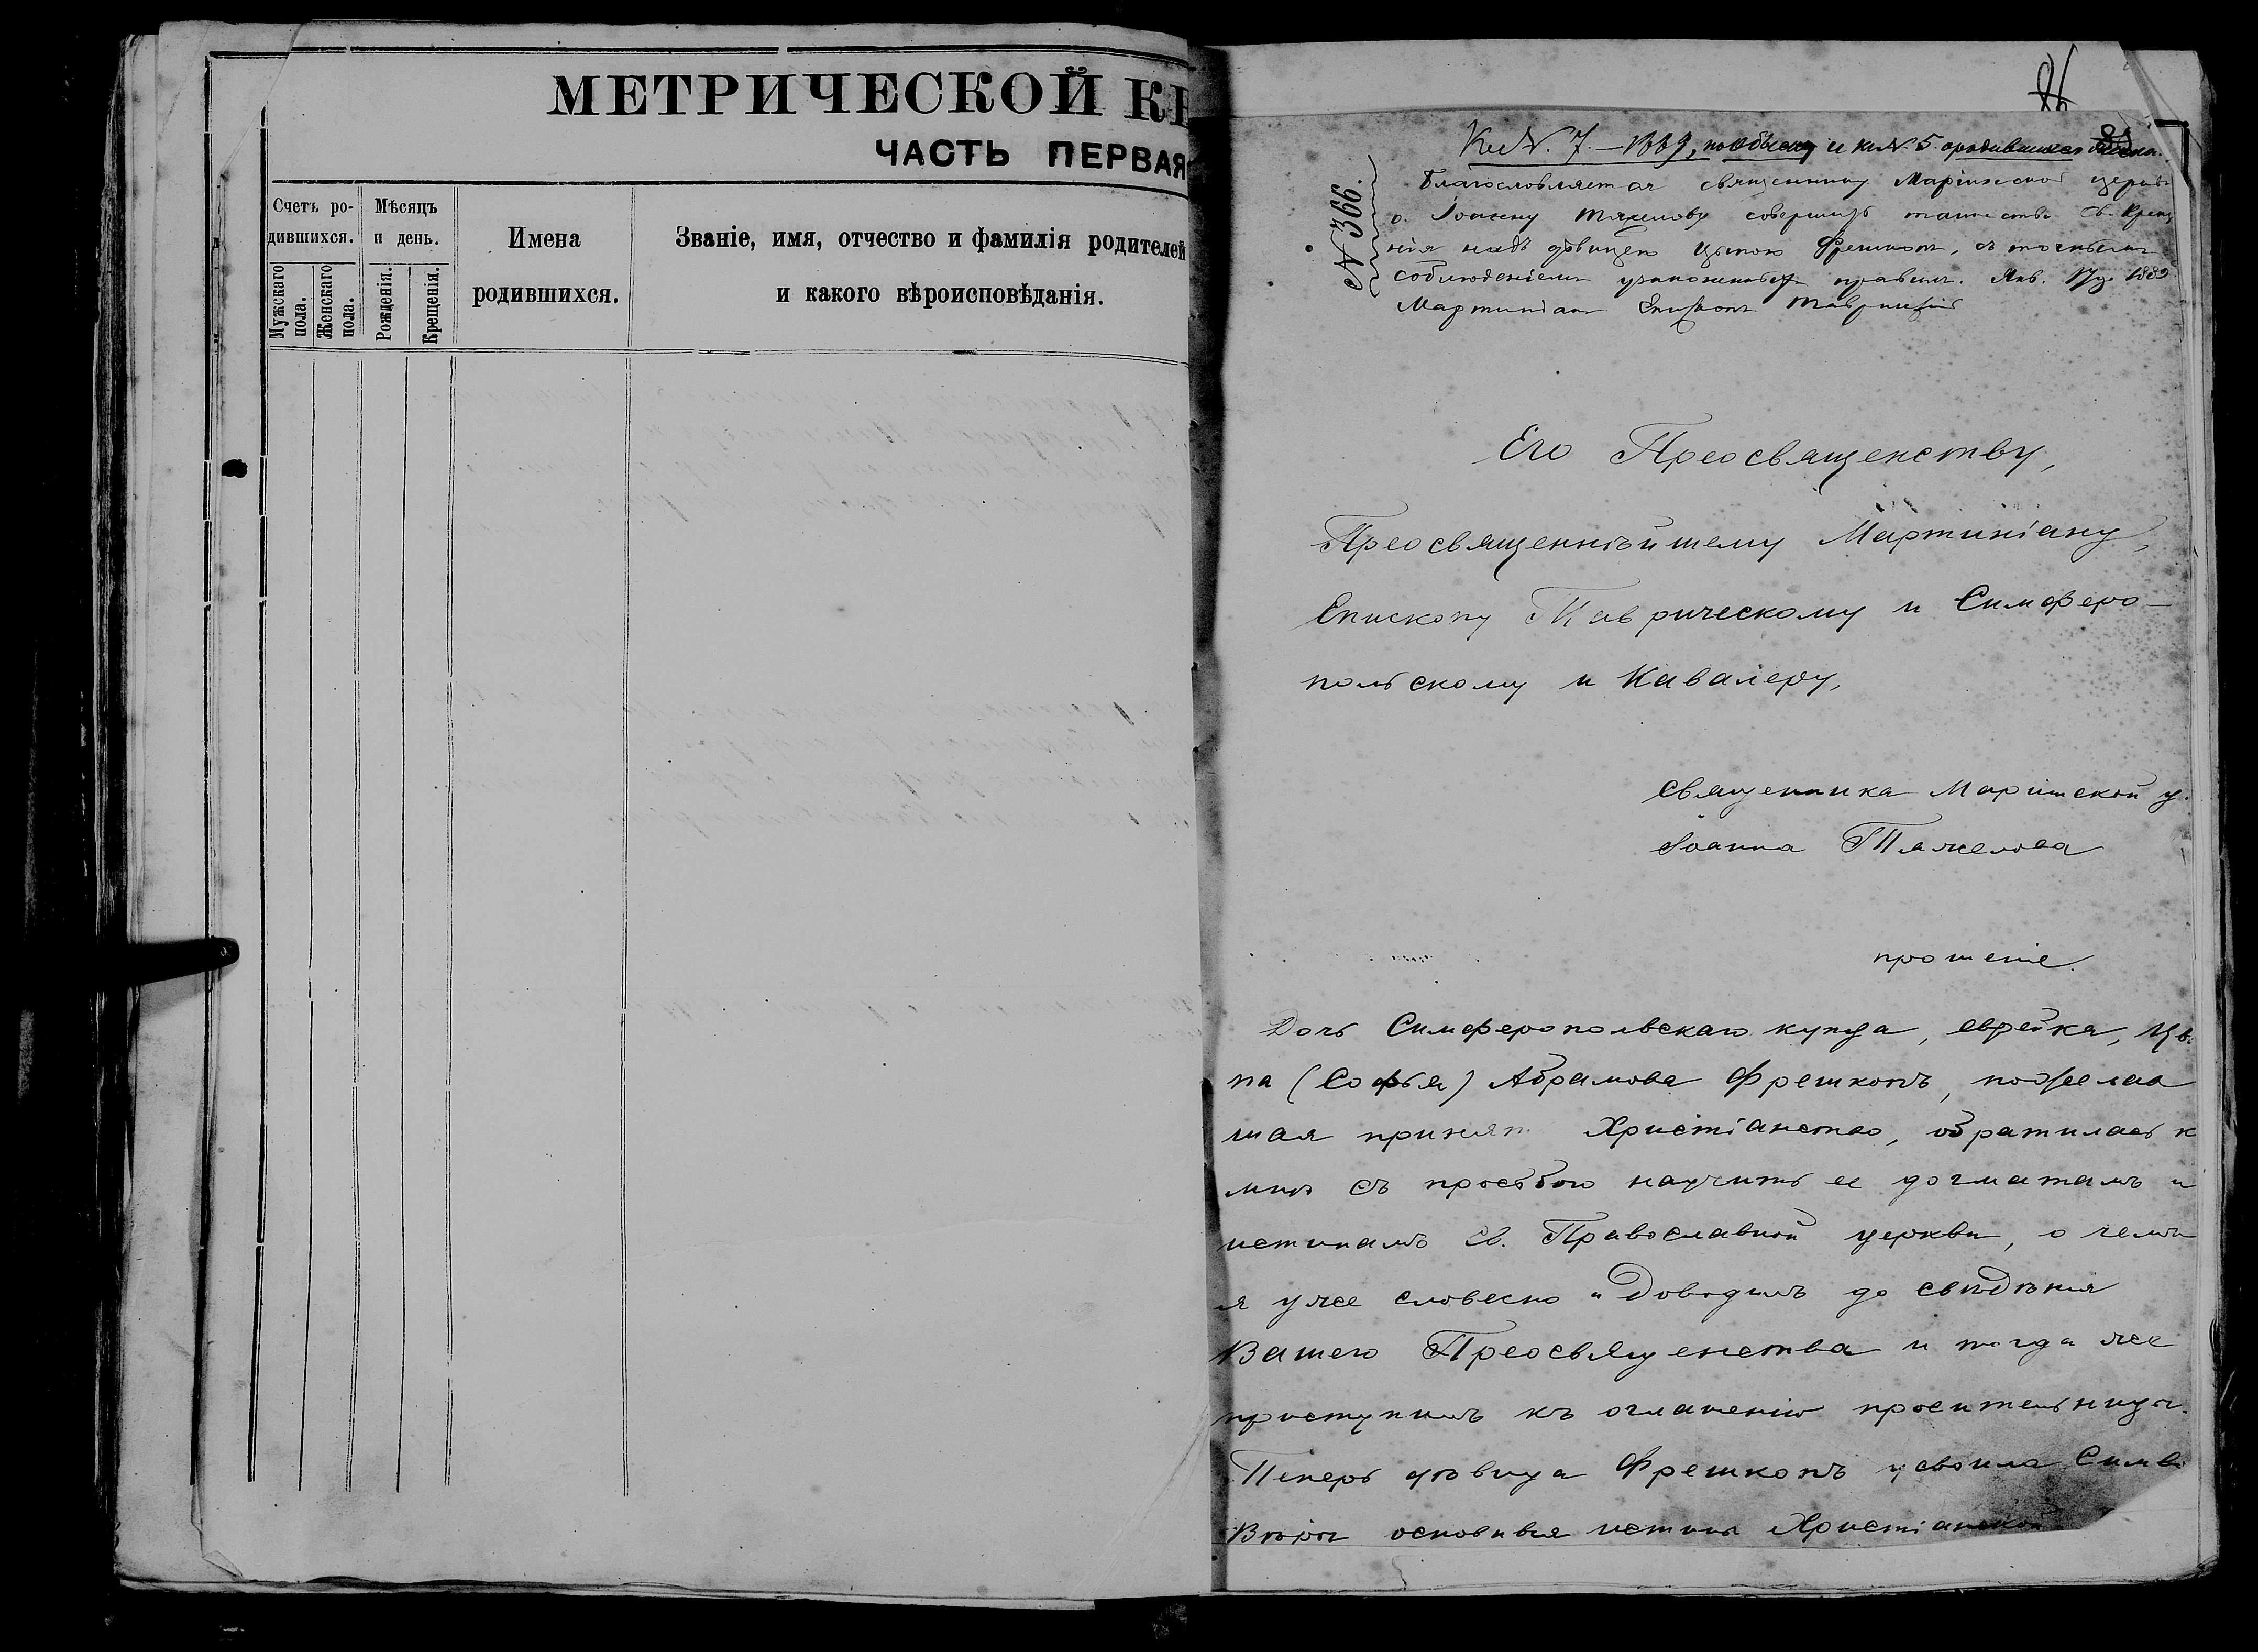 МЕТРИЧЕСКОЙ КН
ЧАСТЬ ПЕРВАЯ
Счетъ ро-
дившихся.
Мѣсяцъ
и день.
Имена
родившихся.
Званіе, имя, отчество и фамилія родителей
и какого вѣроисповѣданія.
Мужскаго
пола.
Женскаго
пола.
Рожденія.
Крещенія.
№ 366.
Къ №. 7. — 1889, по обыску и къ №. 5. о родившихся
Благословляется священнику Маріинской церкви
о. Іоанну Тяжелову совершить таинство св. Креще
нія надъ дѣвицею Цыпою Фрешкопъ, съ точнымъ
соблюденіемъ узаконенныхъ правилъ. Янв. 17 д. 1889
Мартиніанъ Епископъ Таврическій
Его Преосвященству,
Преосвященнѣйшему Мартиніану,
Епископу Таврическому и Симферо-
польскому и Кавалеру,
священника Маріинской ц.
Іоанна Тяжелова
прошеніе.
Дочь Симферопольскаго купца, еврейка, Цы
па (Софья) Абрамова Фрешкопъ, пожелав
шая принять Христіанство, обратилась к
мнѣ съ просьбою научить ее догматамъ и
истинамъ св. Православной церкви, о чемъ
я уже словесно доводилъ до свѣдѣнія
Вашего Преосвященства и тогда же
приступилъ къ оглашенію просительницы.
Теперь дѣвица Фрешкопъ усвоила Симво
Вѣры основныя истины Христіанской